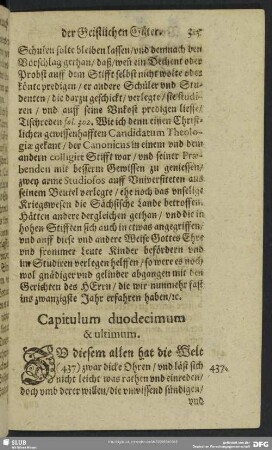 der Geistlichen Güter.
Schulen solte bleiben lassen/und demnach den
Vorschlag gethan/ daß/wen ein Dechent oder
Probst auff dem Stifft selbst nicht wolte oder
könte predigen/ er andere Schüler und Stu-
denten/ die darzu geschickt/ verlegte/ sie studi-
ren/ und auff seine Unkost predigen liesse/
Tischreden fol. 302. Wie ich denn einen Christ-
lichen gewissenhafften Candidatum Theolo-
giæ gekant/ der Canonicus in einem und dem
andern collegier Stifft war/ und seiner Præ-
benden mit besserm Gewissen zu geniessen/
zwey arme Studiosos auff Universiteten aus
seinem Beutel verlegte/ ehe noch das unselige
Kriegswesen die Sächsische Lande betroffen.
Hätten andere dergleichen gethan/ und die in
hohen Stifften sich auch in etwas angegriffen/
und auff diese und andere Weise Gottes Ehre
und frommer Leute Kinder befördern und
im Studiren verlegen helffen/ so were es noch
wol gnädiger und gelinder abgangen mit den
Gerichten des HErrn/ die wir nunmehr fast
ins zwanzigste Jahr erfahren haben/ ꝛc.
Capitulum duodecimum
& ultimum.
ZU diesem allen hat die Welt
(437) zwar dicke Ohren/ und läst sich
437.
nicht leicht was rathen und einreden/
doch umb derer willen/ die unwissend sündigen/
und
SLUB